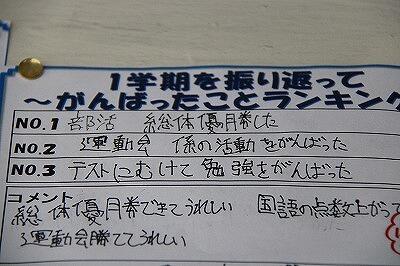 1学期を振り返って
～がんばったことランキング
NO.1 部活 総体優勝した
NO.2 運動会 係の活動をがんばった
NO.3 テストにむけて勉強をがんばった
コメント
総体優勝できてうれしい 国語の点数上がって
運動会勝ててうれしい